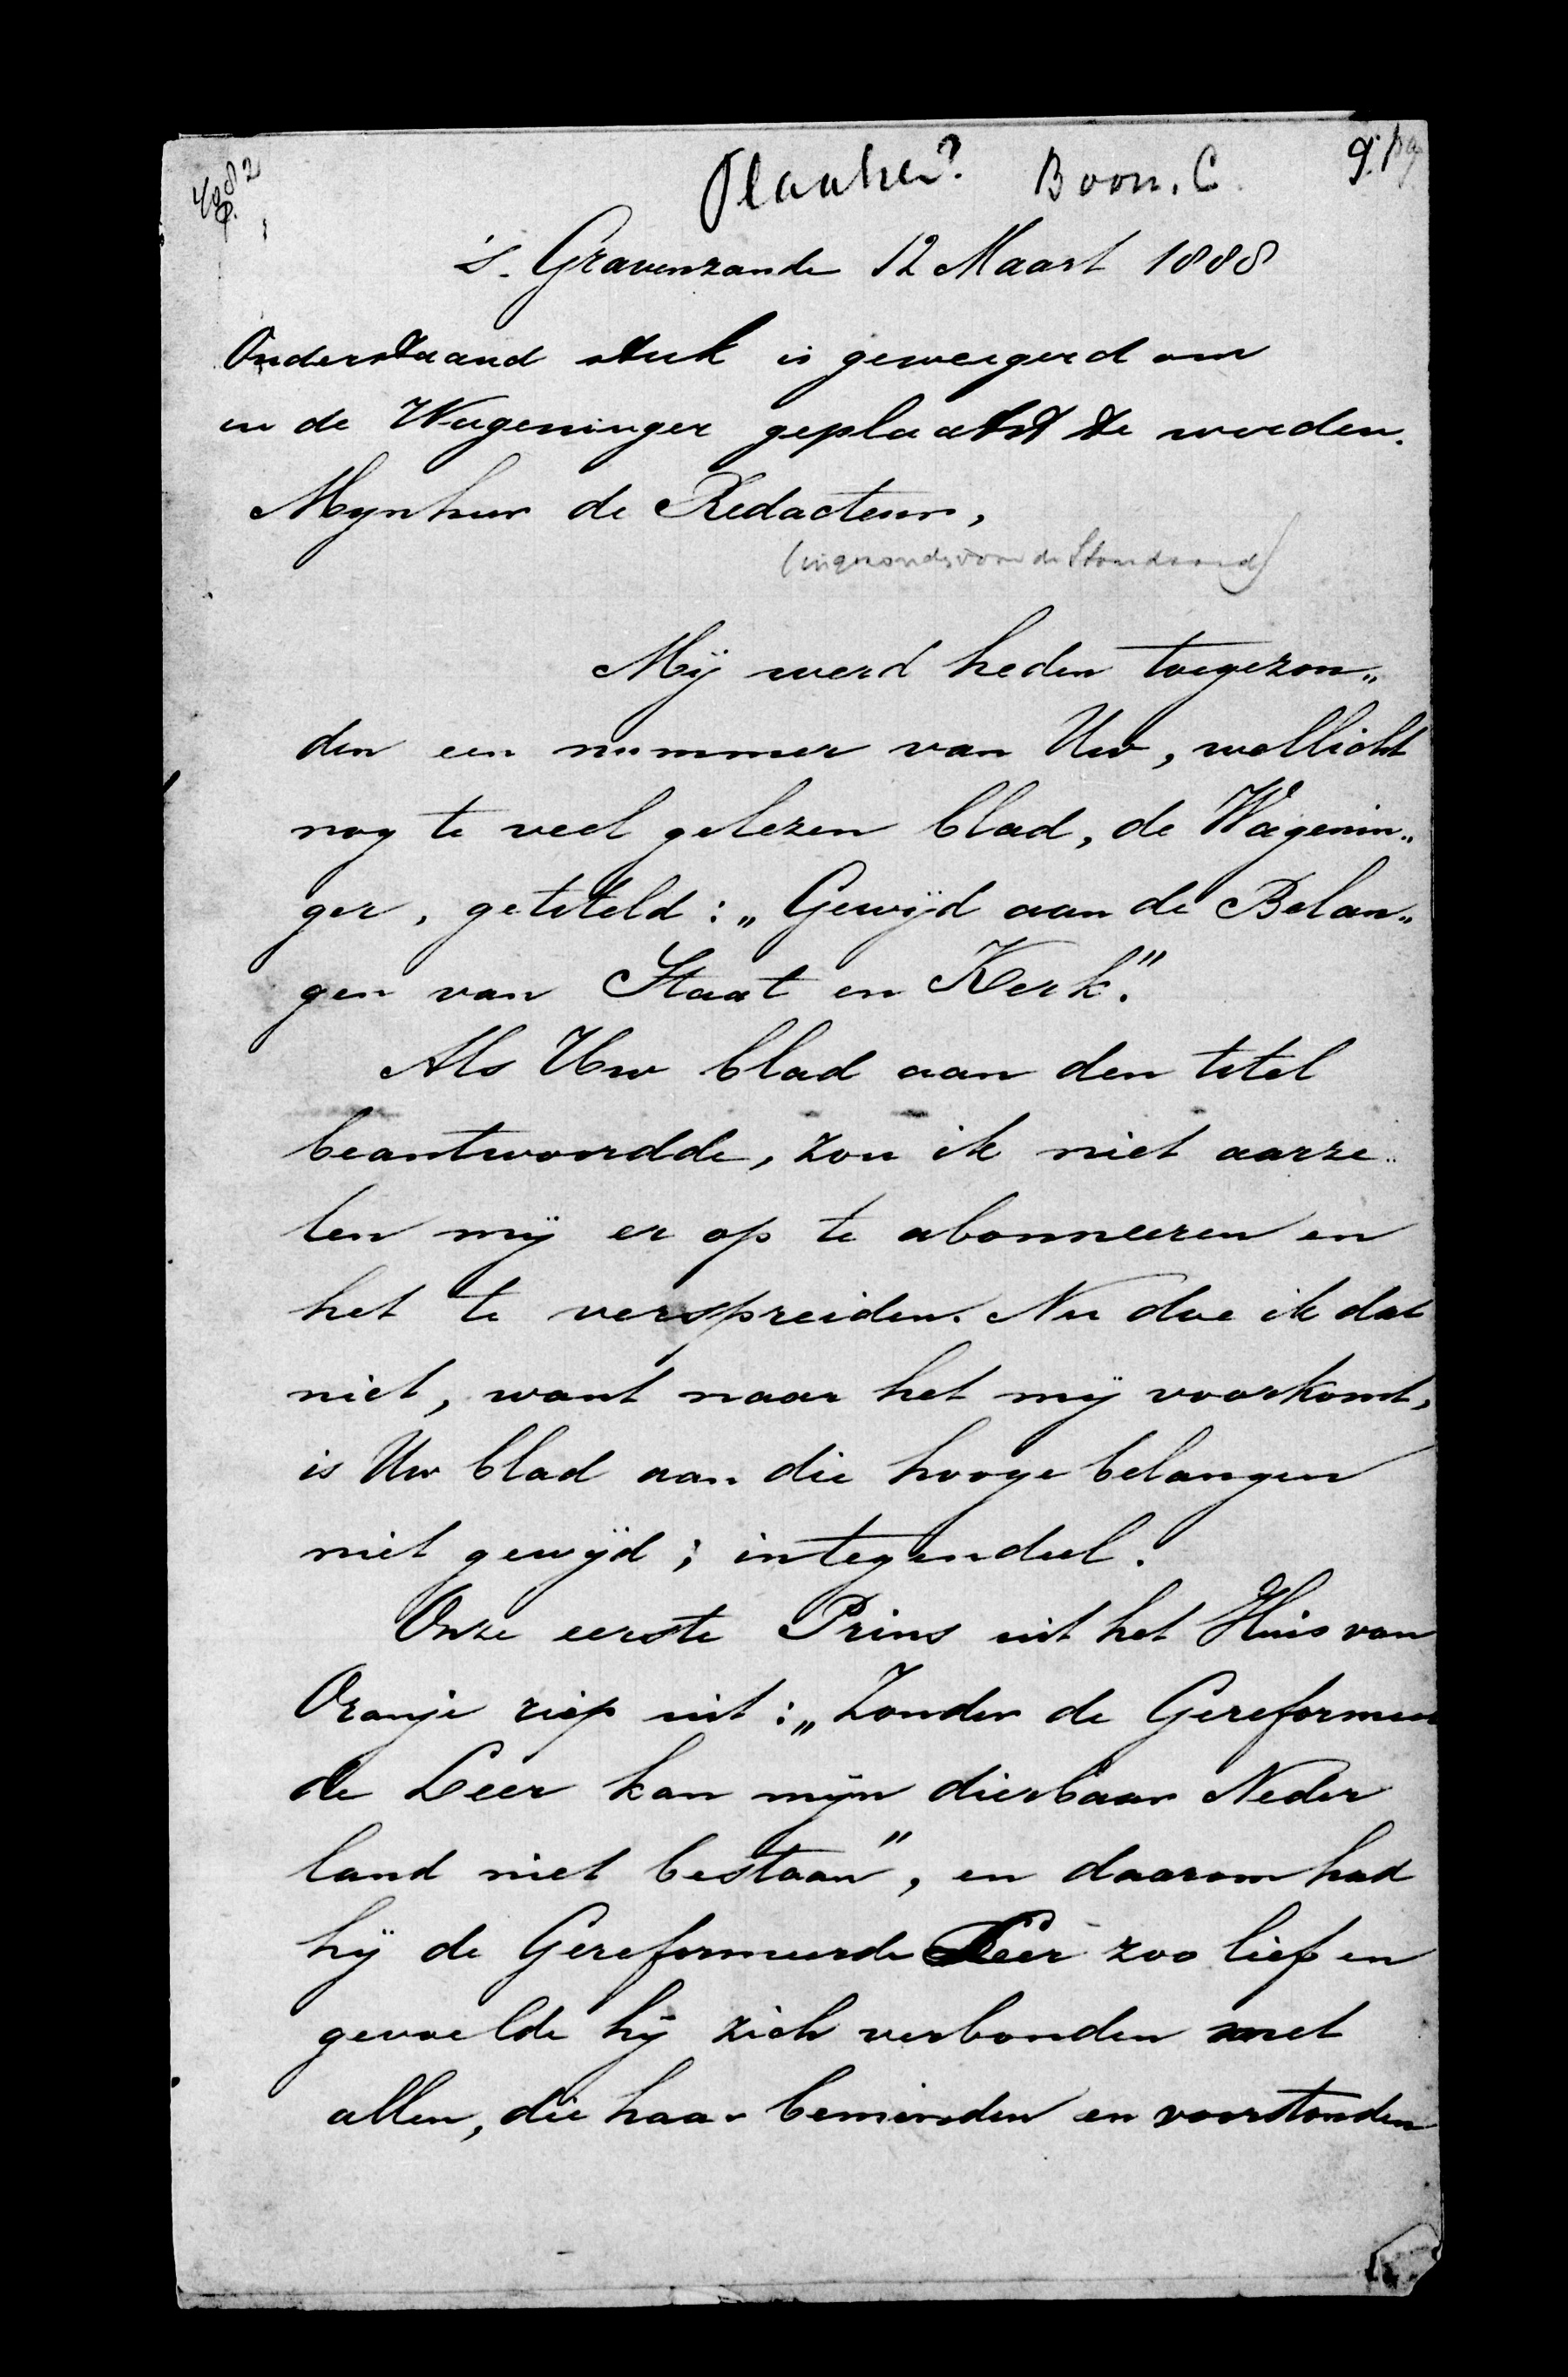 4082
Plaatsen? Boon. C.
's. Gravenzande 12 Maart 1888
Onderstaand stuk is geweigerd om
in de Wageninger geplaatst te worden.
Mynheer de Redacteur,
(ingezonden voor de Standaard)
Mij werd heden toegezon„
den een nummer van Uw, wellicht
nog te veel gelezen blad, de Wagenin„
ger, getiteld: „Gewijd aan de Belan„
gen van Staat en Kerk".
Als Uw blad aan den titel
beantwoordde, zou ik niet aarze„
len mij er op te abonneeren en
het te verspreiden. Nu doe ik dat
niet, want naar het mij voorkomt,
is Uw blad aan die hooge belangen
niet gewijd; integendeel.
Onze eerste Prins uit het Huis van
Oranje riep uit: „Zonder de Gereformeer
de Leer kan mijn dierbaar Neder
land niet bestaan", en daarom had
hij de Gereformeerde Leer zoo lief en
gevoelde hij zich verbonden met
allen, die haar beminden en voorstonden